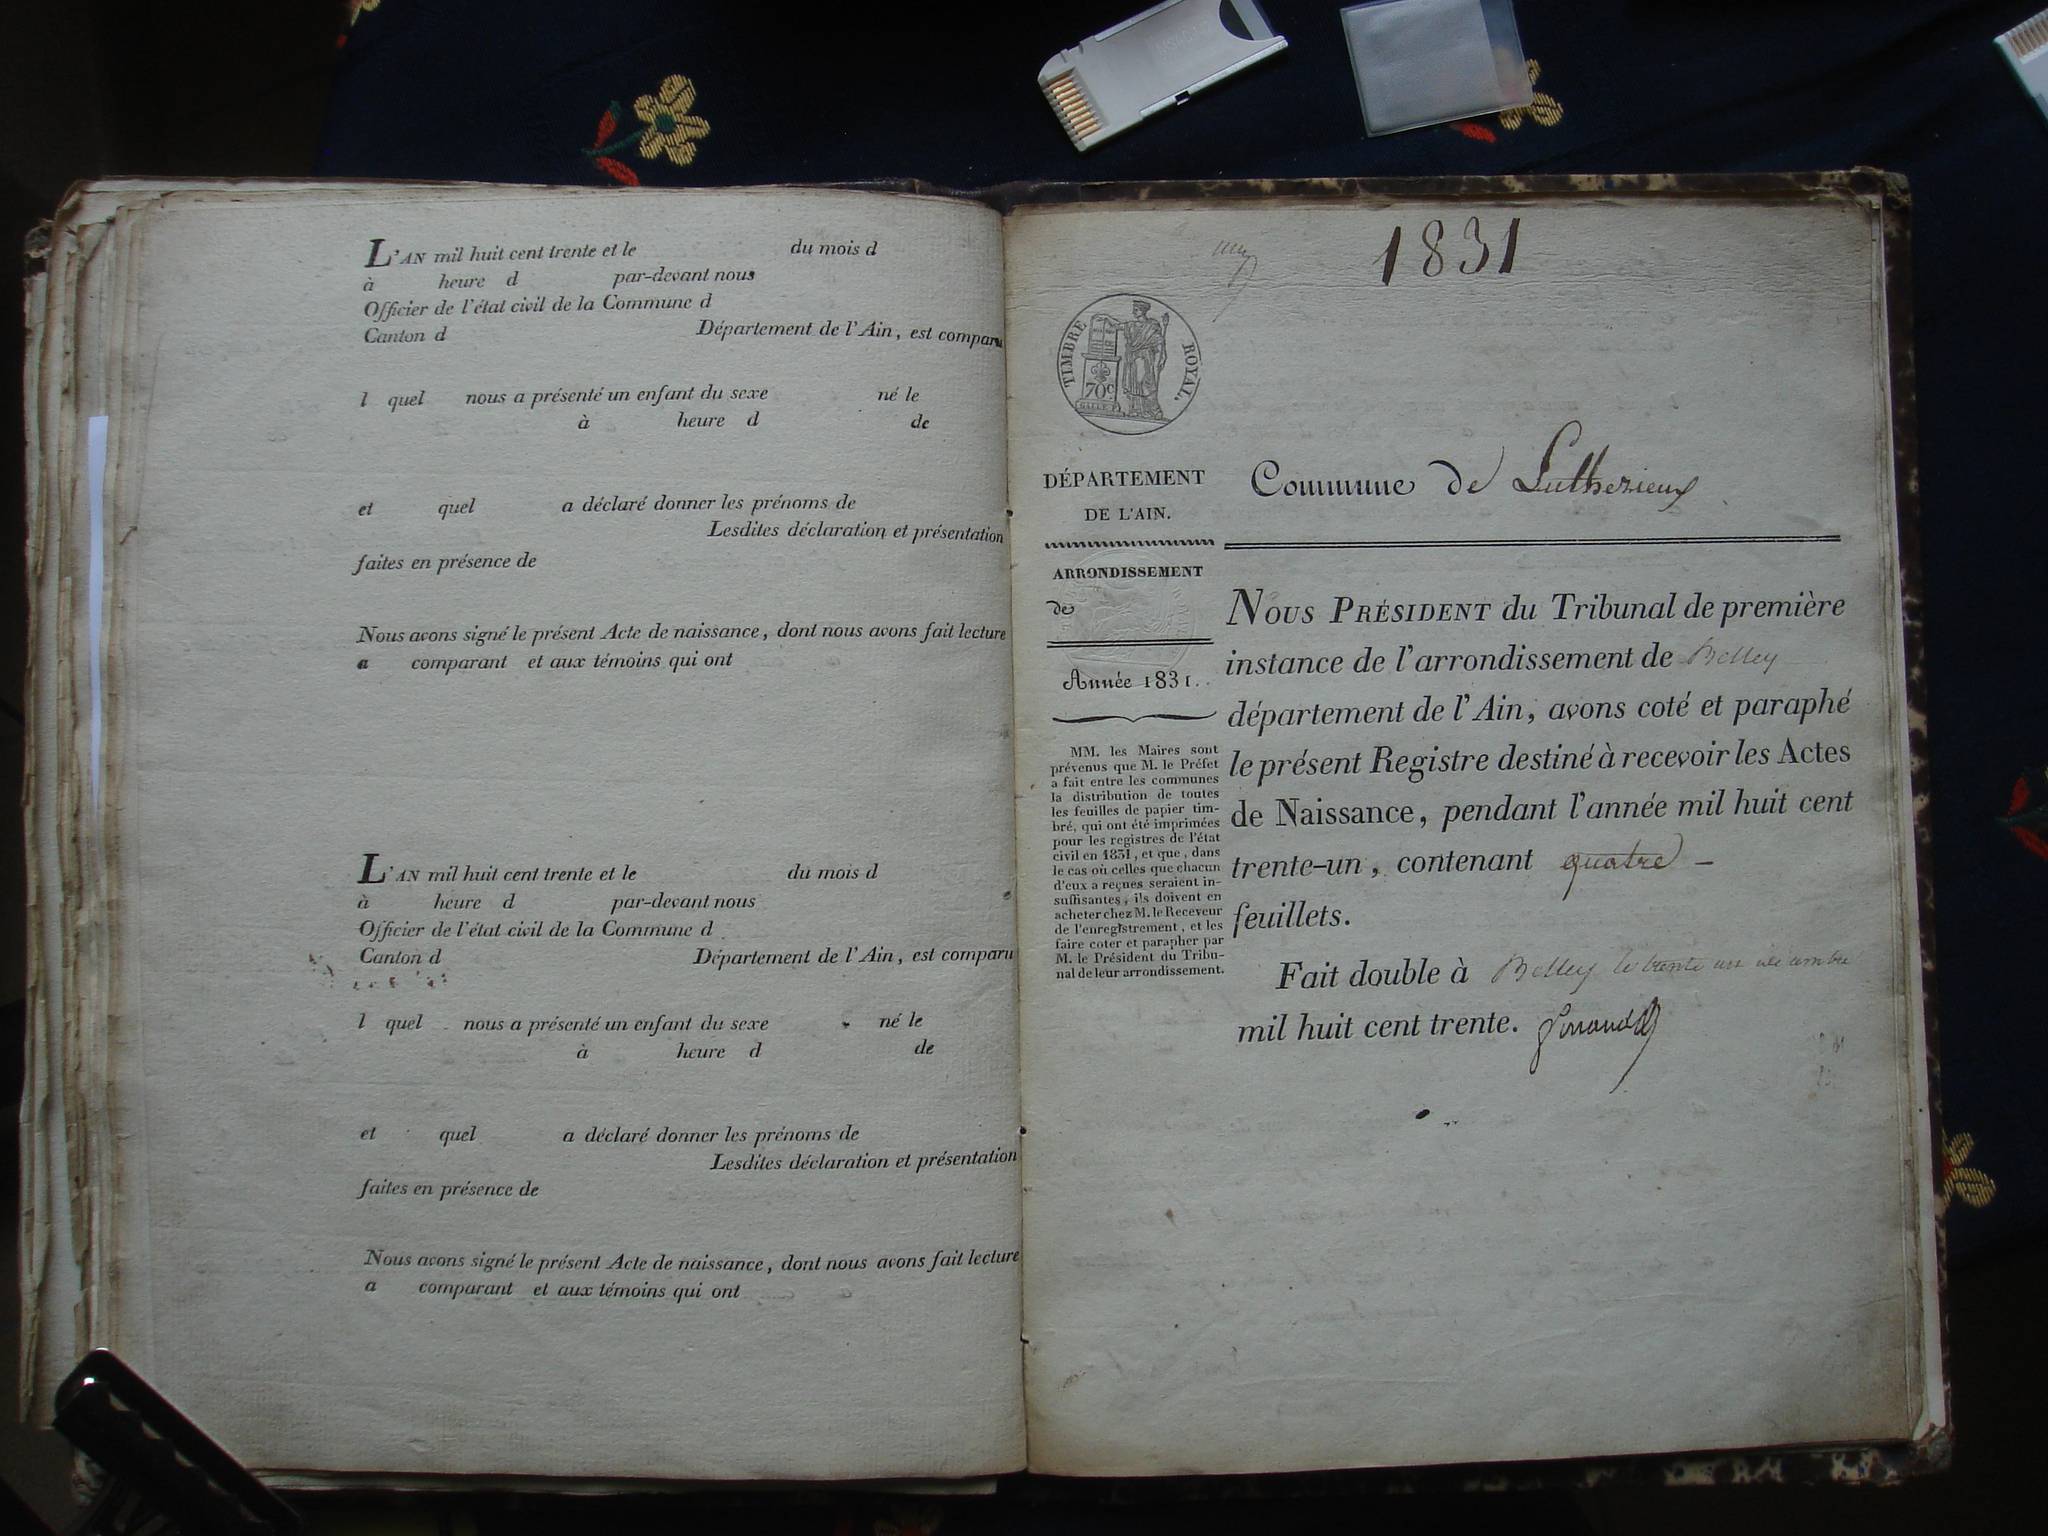 L'AN mil huit cent trente et le du mois d
à heure d par-devant nous
Officier de l'état civil de la Commune d
Canton d Département de l'Ain, est comparu
l quel nous a présenté un enfant du sexe né le
à heure d de
et quel a déclaré donner les prénoms de
Lesdites déclaration et présentation
faites en présence de
Nous avons signé le présent Acte de naissance, dont nous avons fait lecture
a comparant et aux témoins qui ont
L'AN mil huit cent trente et le du mois d
à heure d par-devant nous
Officier de l'état civil de la Commune d
Canton d Département de l'Ain, est comparu
l quel nous a présenté un enfant du sexe né le
à heure d de
et quel a déclaré donner les prénoms de
Lesdites déclaration et présentation
faites en présence de
Nous avons signé le présent Acte de naissance, dont nous avons fait lecture
a comparant et aux témoins qui ont
1831
TIMBRE ROYAL
70c
DÉPARTEMENT
DE L'AIN.
ARRONDISSEMENT
de
Année 1831.
MM. les Maires sont
prévenus que M. le Préfet
a fait entre les communes
la distribution de toutes
les feuilles de papier tim-
bré, qui ont été imprimées
pour les registres de l'état
civil en 1831, et que, dans
le cas où celles que chacun
d'eux a reçues seraient in-
suffisantes, ils doivent en
acheter chez M. le Receveur
de l'enregistrement, et les
faire coter et parapher par
M. le Président du Tribu-
nal de leur arrondissement.
Commune de Luthezieux
NOUS PRÉSIDENT du Tribunal de première
instance de l'arrondissement de Belley
département de l'Ain, avons coté et paraphé
le présent Registre destiné à recevoir les Actes
de Naissance, pendant l'année mil huit cent
trente-un, contenant quatre –
feuillets.
Fait double à Belley le trente un décembre
mil huit cent trente.